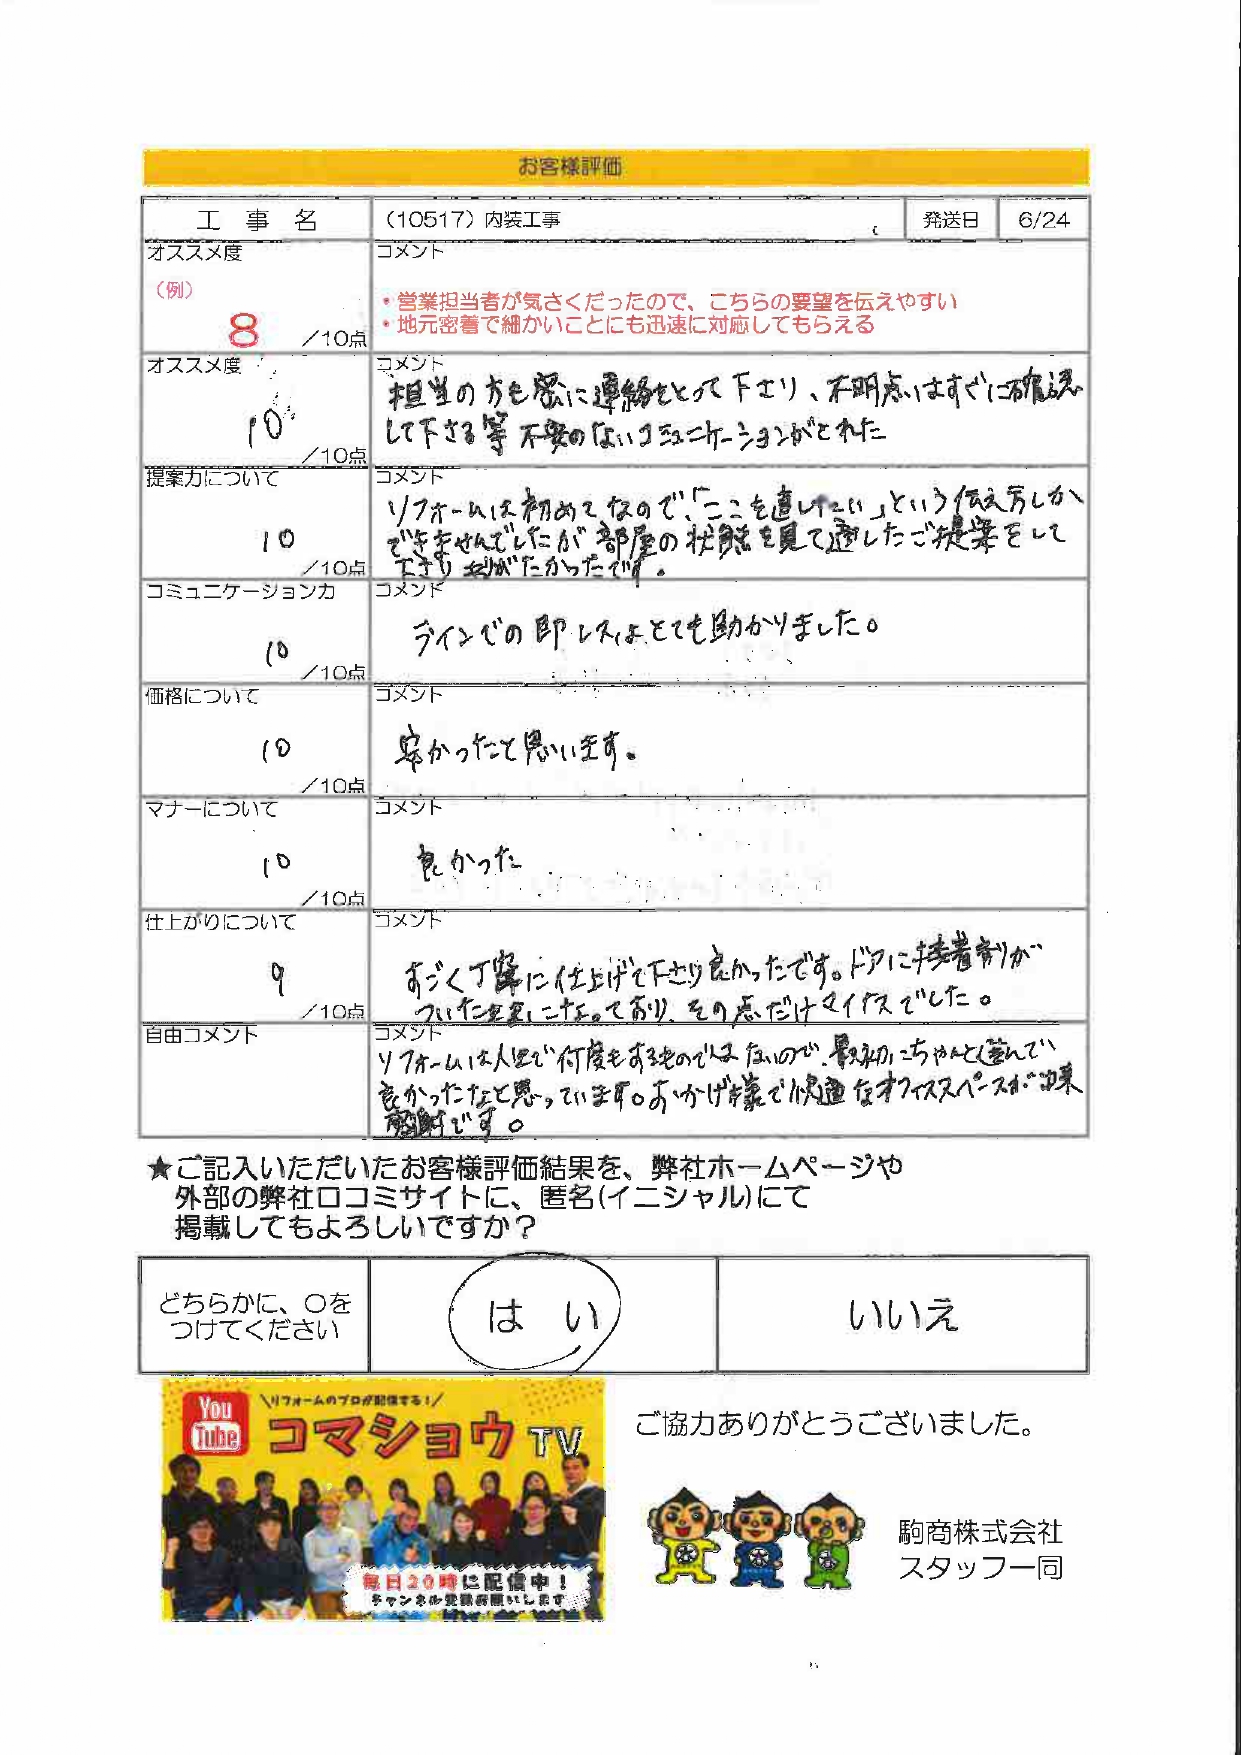 お客様評価
工 事 名 (10517) 内装工事 発送日 6/24
オススメ度 コメント
(例)
・営業担当者が気さくだったので、こちらの要望を伝えやすい
8 /10点 ・地元密着で細かいことにも迅速に対応してもらえる
オススメ度 コメント
担当の方も密に連絡をとって下さり、不明点はすぐに確認
10 して下さる等 不安のないコミュニケーションがとれた
/10点
提案力について コメント
リフォームは初めてなので、「ここを直したい」という伝え方しか
10 できませんでしたが部屋の状態を見て適したご提案をして
/10点 下さりありがたかったです。
コミュニケーション力 コメント
ラインでの即レスはとても助かりました。
10
/10点
価格について コメント
10 安かったと思います。
/10点
マナーについて コメント
10 良かった
/10点
仕上がりについて コメント
9 すごく丁寧に仕上げて下さり良かったです。ドアに接着剤が
/10点 ついたままになっており、その点だけマイナスでした。
自由コメント コメント
リフォームは人生で何度もするものではないので、最初にちゃんと選んで
良かったなと思っています。おかげ様で快適なオフィススペースが出来
感謝です。
★ご記入いただいたお客様評価結果を、弊社ホームページや
外部の弊社口コミサイトに、匿名(イニシャル)にて
掲載してもよろしいですか？
どちらかに、〇を
つけてください
は い いいえ
You
Tube
\リフォームのプロが配信する!/
コマショウTV
毎日20時に配信中！
チャンネル登録お願いします
ご協力ありがとうございました。
駒商株式会社
スタッフ一同